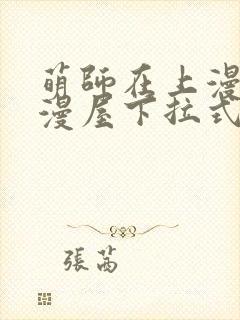 萌師在上漫
漫屋下拉式
張茜